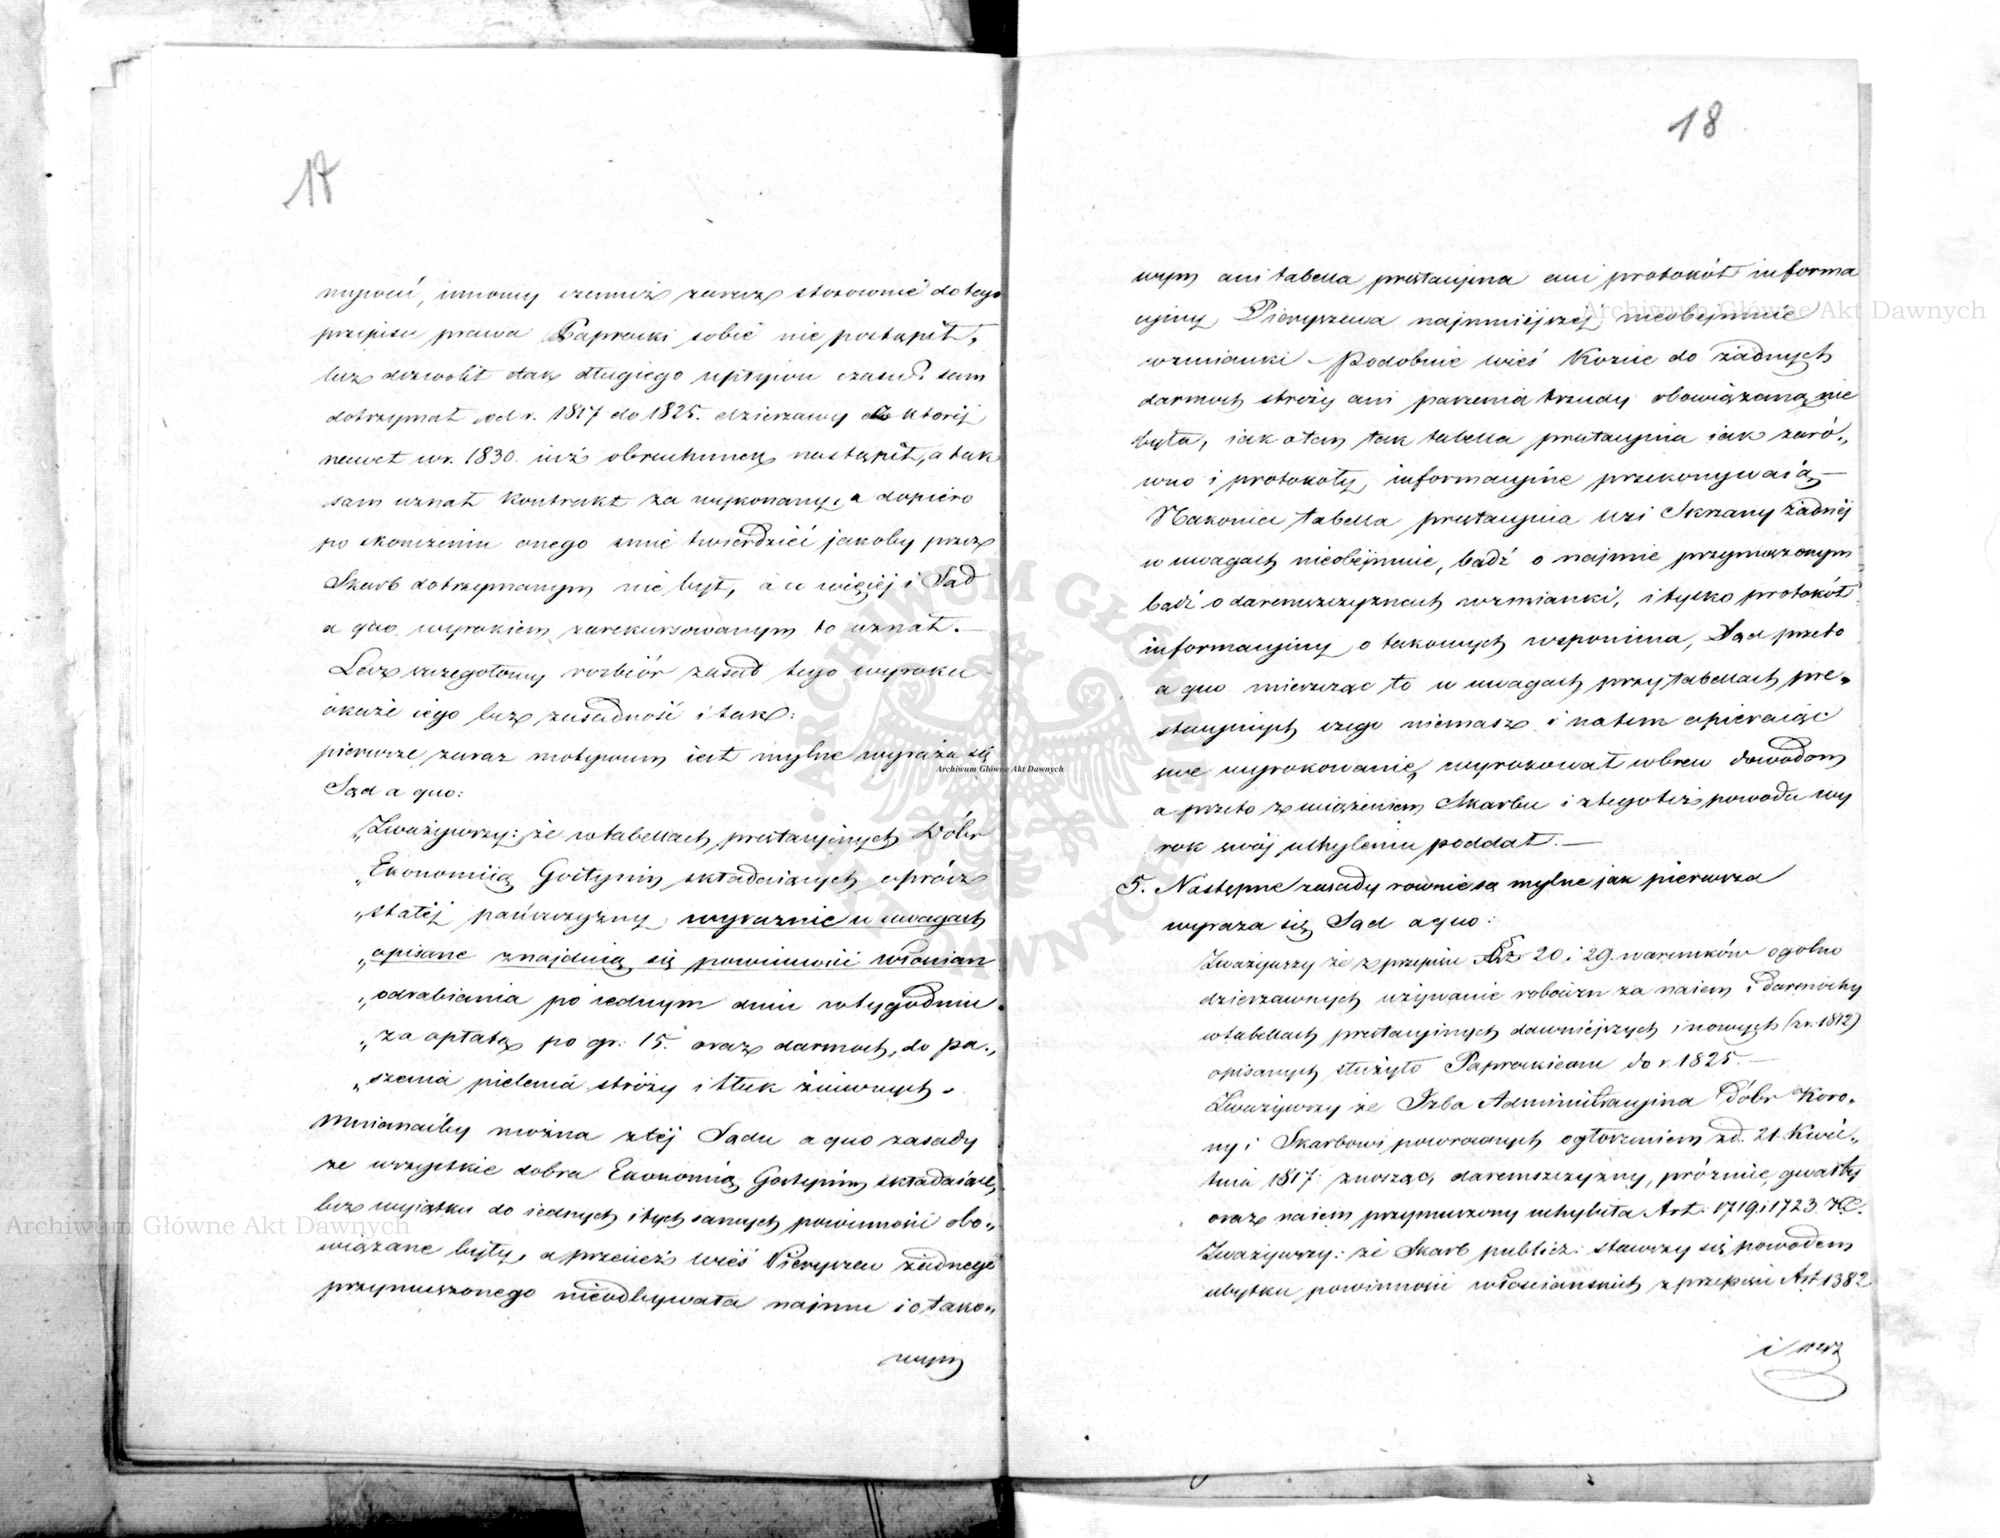 17
mywać, innomy czemuż zaraz stosownie do tego
przepisu prawa Paprocki sobie nie postąpił,
lecz dozwolił tak długiego upływu czasu? sam
dotrzymał od r. 1817 do 1825. dzierzawy z ktorej
nawet w r. 1830. iuż obrachunek nastąpił, a tak
sam uznał Kontrakt za wykonany, a dopiero
po skonczeniu onego smie twierdzić jakoby przez
Skarb dotrzymanym nie był, a co więcej i Sąd
a quo wyrokiem zarekursowanym to uznał. —
Lecz szczegołowy rozbiór zasad tego wyroku
okaże iego bezzasadność i tak:
pierwsze zaraz motywum iest mylne wyraża się
Sąd a quo:
„Zważywszy: że w tabellach prestacyjnych Dóbr
„Ekonomiią Gostynin składaiących oprócz
„stałéj pańszczyzny, wyraznie w uwagach
„opisane znajduią się powinności włoscian
„odrabiania po iednym dniu w tygodniu
„za opłatą po gr: 15. oraz darmoch, do pa„
„szenia pielenia stróży i tłuk żniwnych.
Mniemaćby można z téj Sądu a quo zasady
że wszystkie dobra Ekonomią Gostynin składaiące
bez wyiątku do iednych i tych samych powinności obo„
wiązane były, a przecież wieś Pieryszew żadnego
przymuszonego nieodbywała najmu i o tako„
wym
18
wym ani tabella prestacyjna ani protokół informa
cyjny, Pieryszewa najmniejszej nieobejmuie
wzmianki — Podobnie wieś Kozice do żadnych
darmoch stróży ani paszenia trzody obowiązaną nie
była, iak o tem tak tabella prestacyjna iak zaró„
wno i protokoły informacyjne przekonywaią —
Nakoniec tabella prestacyjna wsi Skrzany żadnéj
w uwagach nieobejmuie, bądź o najmie przymuszonym
bądź o daremszczyznach wzmianki, i tylko protokół
informacyjny o takowych wspomina, Sąd przeto
a quo mieszcząc to w uwagach przy tabellach pre„
stacyjnych czego niemasz i na tem opieraiąc
swe wyrokowanie, wyrokował wbrew dowodom
a przeto z uciążeniem Skarbu i z tego też powodu wy
rok swój uchyleniu poddał. —
5. Następne zasady rownie są mylne jak pierwsza
wyraza się Sąd a quo:
Zważywszy że z przepisu §§. 20 i 29. warunków ogolno
dzierzawnych używanie robocizn za naiem i darmochy
w tabellach prestacyjnych dawniejszych i nowych (z r. 1812)
opisanych służyło Paprockiemu do r. 1825. —
Zważywszy że Izba Administracyjna Dóbr Koro„
ny i Skarbowi powroconych ogłoszeniem z d. 21. Kwie„
tnia 1817. znosząc daremszczyzny, próżnie, gwałty
oraz naiem przymuszony uchybiła Art: 1719 i 1723. K.C.
Zważywszy: że Skarb publicz: stawszy się powodem
ubytku powinności włościanskich z przepisu Art. 1382